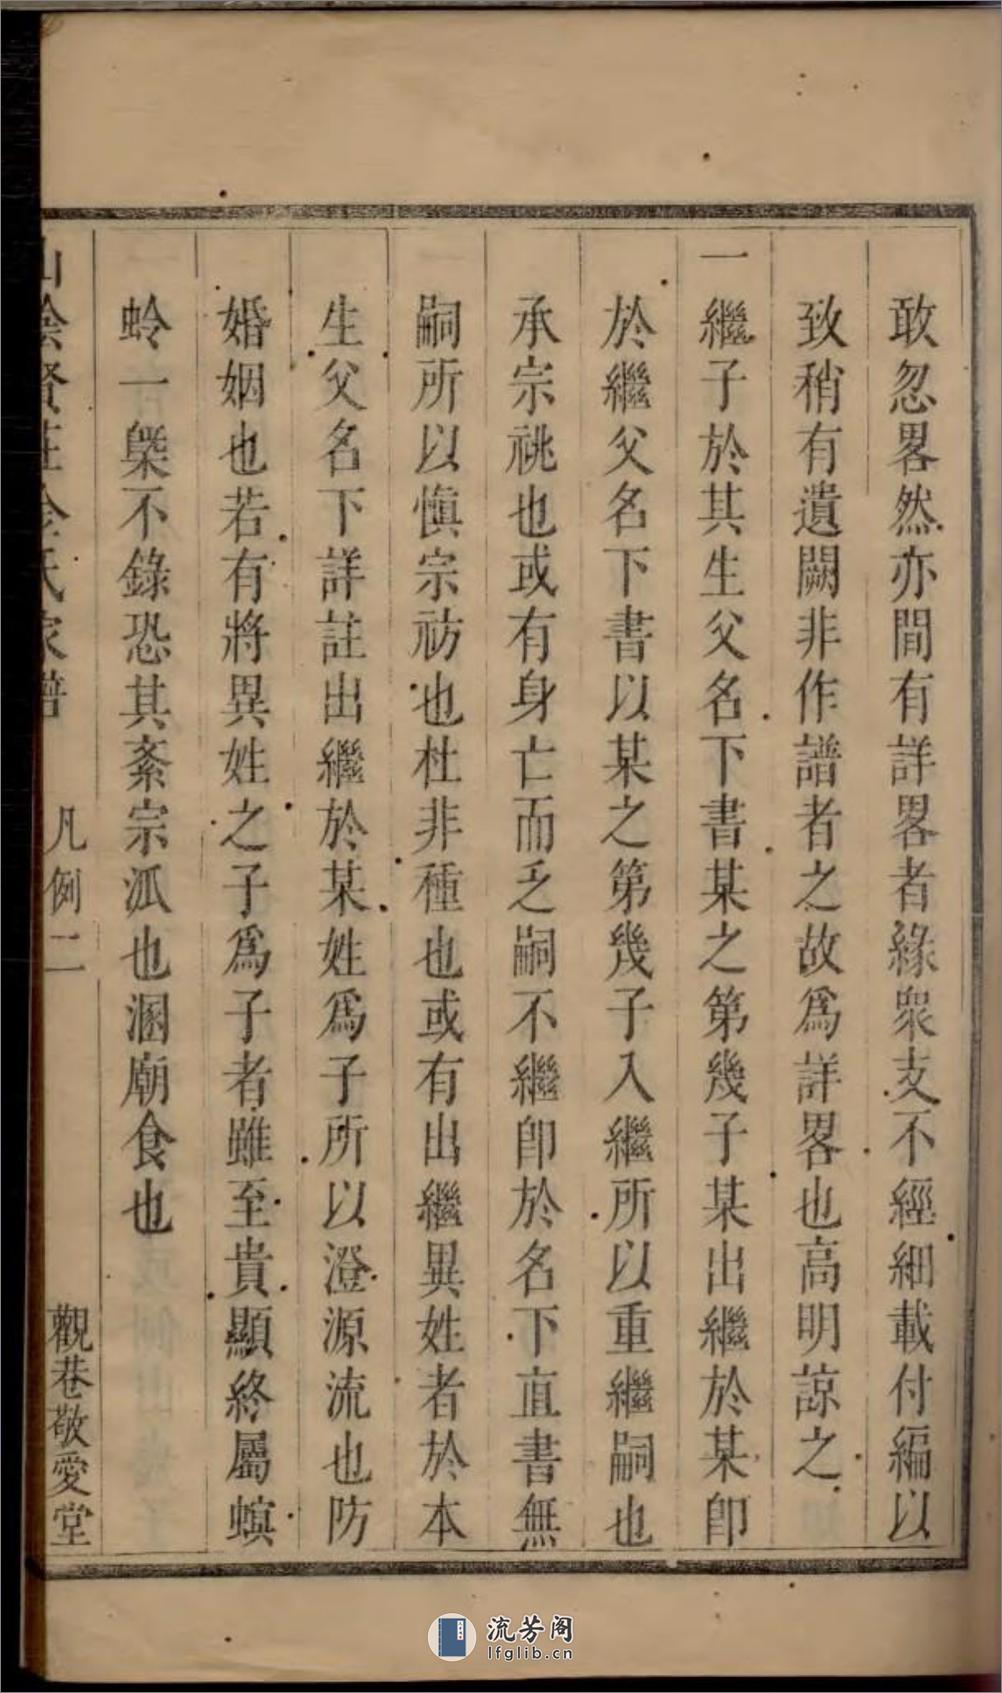 敢忽畧然亦間有詳畧者緣衆支不經細載付編以
致稍有遺闕非作譜者之故爲詳畧也高明諒之
一繼子於其生父名下書某之第幾子某出繼於某卽
於繼父名下書以某之第幾子入繼所以重繼嗣也
承宗祧也或有身亡而乏嗣不繼卽於名下直書無
嗣所以愼宗祊也杜非種也或有出繼異姓者於本
生父名下詳註出繼於某姓爲子所以澄源流也防
婚姻也若有將異姓之子爲子者雖至貴顯終屬螟
蛉一槩不錄恐其紊宗派也溷廟食也
山陰賢莊金氏家譜
凡例二
觀巷敬愛堂
流芳阁
lfglib.cn